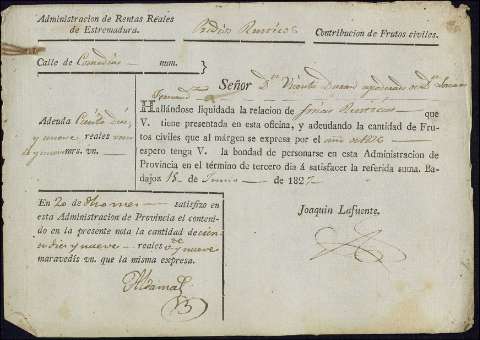 Administracion de Rentas Reales
de Estremadura.
Predios Rusticos
Contribucion de Frutos civiles.
Calle de Comedias num. }
Señor Dn. Vicente Duran apoderado de Dn.
Adeuda Ciento diez
y nueve reales
y nueve mrs. vn.
Hallándose liquidada la relacion de fincas Rusticas que
V. tiene presentada en esta oficina, y adeudando la cantidad de Fru-
tos civiles que al márgen se expresa por el año de 1826
espero tenga V. la bondad de personarse en esta Administracion de
Provincia en el término de tercero dia á satisfacer la referida suma. Ba-
dajoz 15 de Junio de 1827.
Joaquin Lafuente.
En 20 de dho mes satisfizo en
esta Administracion de Provincia el conteni-
do en la presente nota la cantidad de cien-
to diez y nueve reales y nueve
maravedís vn. que la misma expresa.